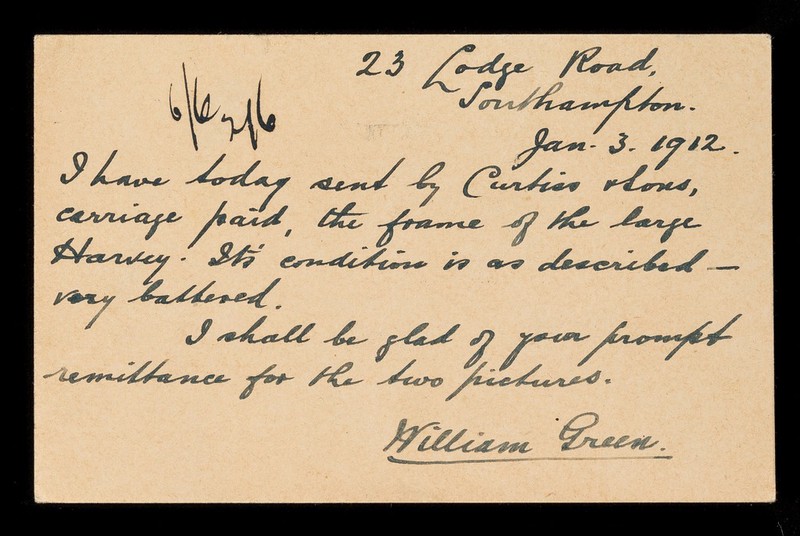 23 Lodge Road,
Southampton.
6/6 2/6
Jan. 3. 1912.
I have today sent by Curtiss & Sons,
carriage paid, the frame of the large
Harvey. Its' condition is as described —
very battered.
I shall be glad of your prompt
remittance for the two pictures.
William Green.